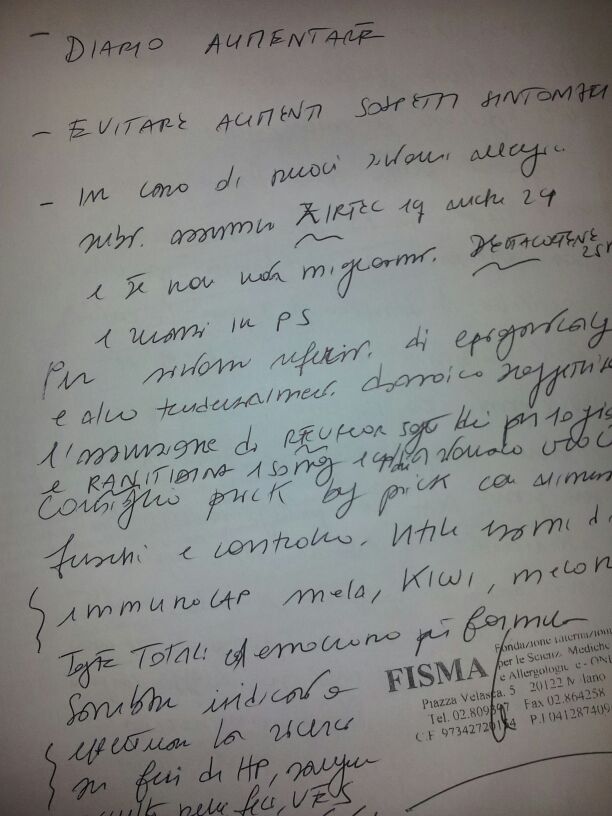 - DIARIO ALIMENTARE
- EVITARE ALIMENTI SOSPETTI SINTOMATI
- In caso di nuovi sintomi allergici
assumere ZIRTEC 1q anche 2q
e se non vede miglioram. DELTACORTENE 25
e recarsi in PS
Per sintomi riferiti di epigastralg
e alvo tendenzialmen. diarroico suggerirei
l'assunzione di gtt die per 10 gio
e RANITIDINA 150mg 1
Consiglio prick by prick con alimen
freschi e controllo. Utile esami di
immunoCAP mela, KIWI, melon
IgE TOTALI ed emocromo più formula
Sarebbe indicato
effettuare la ricerca
su feci di HP, sangue
nelle feci, VES
FISMA
Fondazione
per le Scienze Mediche
e Allergologic
Piazza Velasca, 5 20122 Milano
Tel. 02.809 Fax 02.864258
C.F. 97342720 P.I 041287409